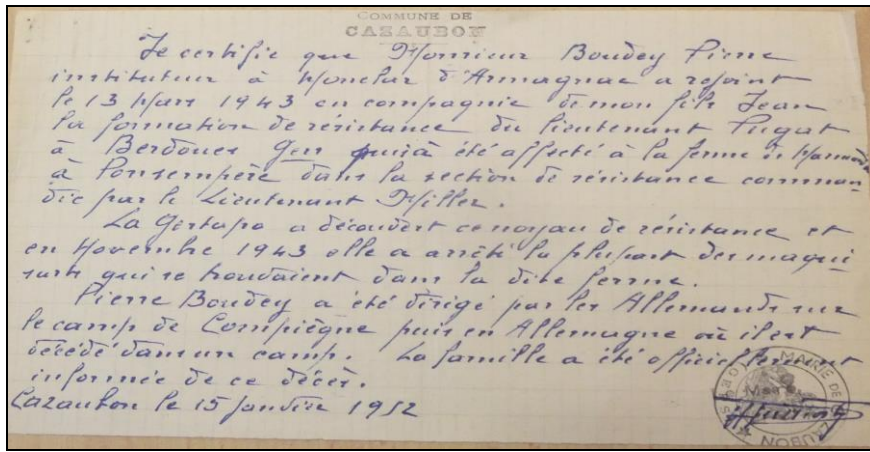 COMMUNE DE
CAZAUBON
Je certifie que Monsieur Boudey Pierre
instituteur à Monclar d'Armagnac a rejoint
le 13 Mars 1943 en compagnie de mon fils Jean
la formation de résistance du lieutenant
à Berdoues Gers puis à été affecté à la ferme de
à Ponsempère dans la section de résistance comman-
dée par le Lieutenant Hiller.
La Gestapo a découvert ce noyau de résistance et
en Novembre 1943 elle a arrêté la plupart des maqui-
sards qui se trouvaient dans la dite ferme.
Pierre Boudey a été dirigé par les Allemands sur
le camp de Compiègne puis en Allemagne où il est
décédé dans un camp. La famille a été officiellement
informée de ce décès.
Cazaubon le 15 Janvier 1952
MAIRIE DE CAZAUBON